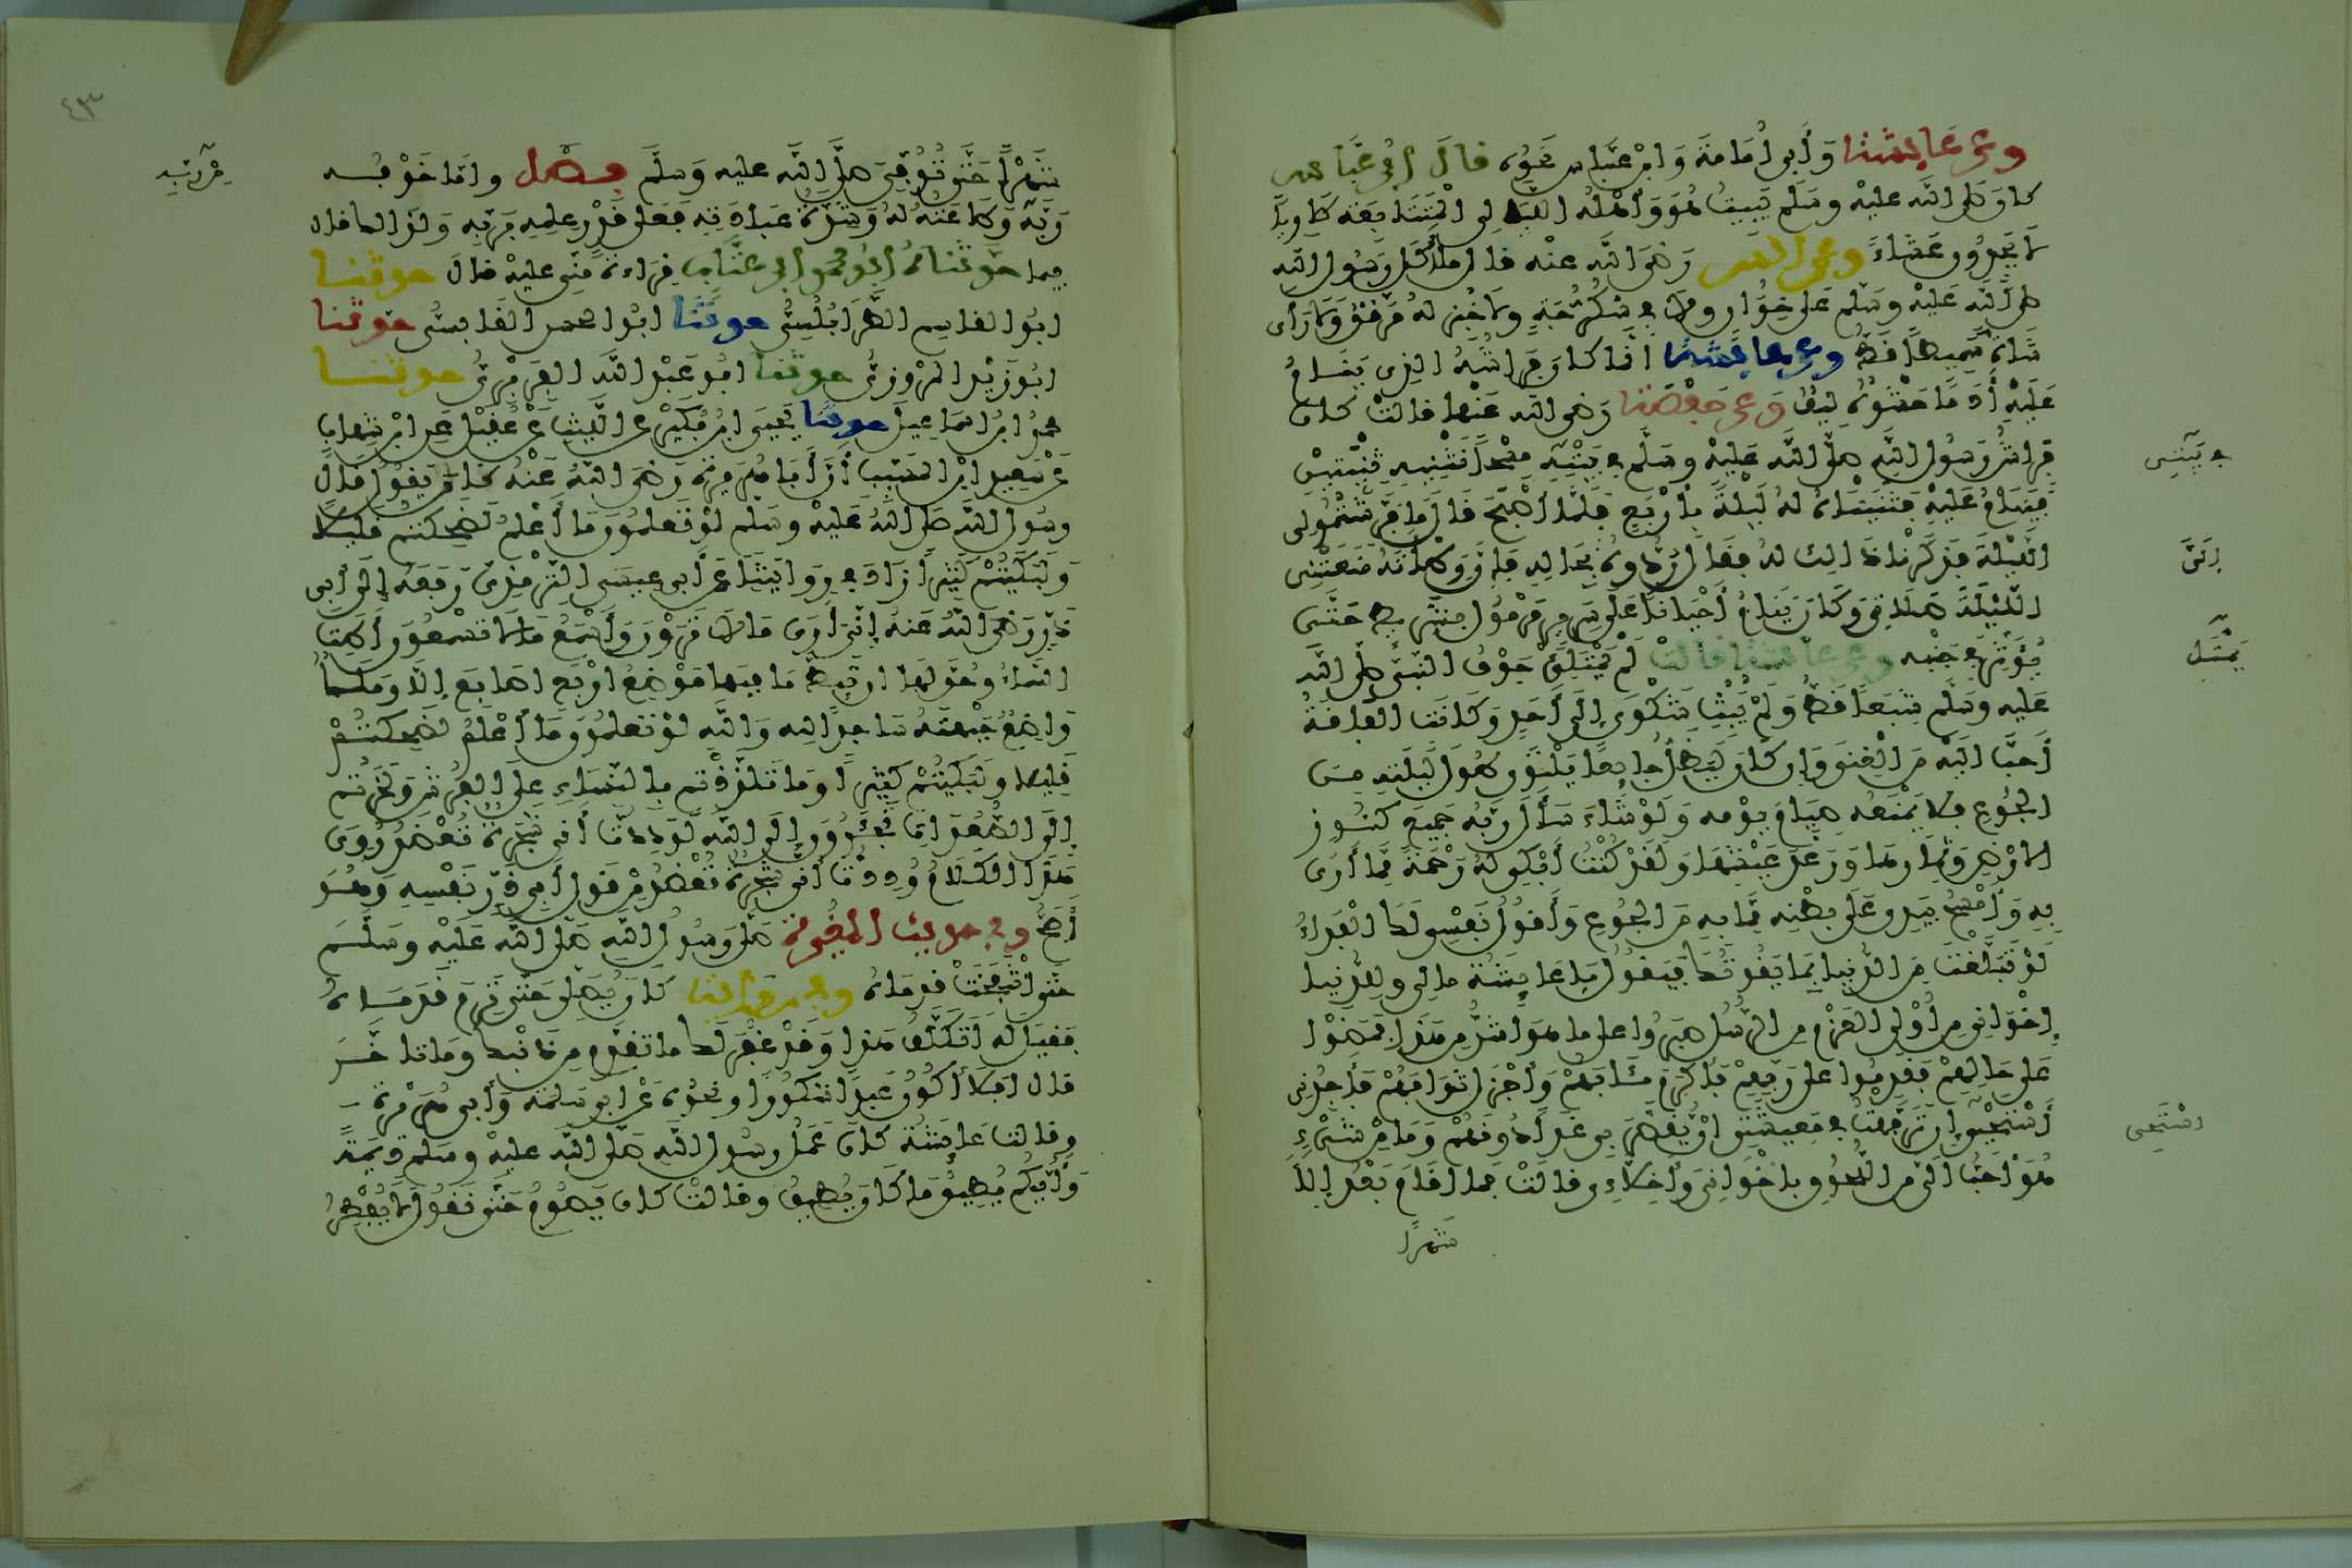 وعن عائشة وأبي أمامة وابن عباس نحوه قال ابن عباس
كان صلى الله عليه وسلم يبيت هو وأهله الليالي المتتابعة طاويا
لا يجدون عشاء وعن أنس رضي الله عنه قال ما أكل رسول الله
صلى الله عليه وسلم على خوان ولا في سكرجة ولا خبز له مرقق ولا رأى
شاة سميطا قط وعن عائشة إنما كان فراشه الذي ينام
عليه أدما حشوه ليف وعن حفصة رضي الله عنها قالت كان
فراش رسول الله صلى الله عليه وسلم في بيته مسحا نثنيه ثنيتين
في بيتي
فينام عليه فثنيناه له ليلة بأربع فلما أصبح قال ما فرشتموا لي
الليلة فذكرنا ذالك له فقال ردوه بحاله فإن وطأته منعتني
الليلة صلاتي وكان ينام أحيانا على سرير مرمول بشريط حتى
يؤثر في جنبه وعن عائشة قالت لم يمتلئ جوف النبي صلى الله
يمتل
عليه وسلم شبعا قط ولم يبث شكوى إلى أحد وكانت الفاقة
أحب إليه من الغنى وإن كان ليظل جائعا يلتوي طول ليلته من
الجوع فلا يمنعه صيام يومه ولو شاء سأل ربه جميع كنوز
الأرض وثمارها ورغد عيشها ولقد كنت أبكي له رحمة مما أرى
به وأمسح بيدي على بطنه مما به من الجوع وأقول نفسي لك الفداء
لو تبلغت من الدنيا بما يقوتك فيقول يا عائشة ما لي وللدنيا
إخواني من أولي العزم من الرسل صبروا على ما هو أشد من هذا فمضوا
على حالهم فقدموا على ربهم فأكرم مئابهم وأجزل ثوابهم فأجدني
أستحيي إن ترفهت في معيشتي أن يقصر بي غدا دونهم وما من شيء
استحي
هو أحب إلي من اللحوق بإخواني وأخلائي قالت فما أقام بعد إلا
شهرا
٤٣
شهرا حتى توفي صلى الله عليه وسلم فصل وأما خوفه
من ربه
ربه وطاعته له وشدة عبادته فعلى قدر علمه بربه ولذالك قال
فيما حدثناه أبو محمد ابن عتاب قراءة مني عليه قال حدثنا
أبوا القاسم الطرابلسي حدثنا أبوا الحسن القابسي حدثنا
أبو زيد المروزي حدثنا أبو عبد الله الفربري حدثنا
محمد ابن إسماعيل حدثنا يحيى ابن بكير عن الليث عن عقيل عن ابن شهاب
عن سعيد ابن المسيب أن أبا هريرة رضي الله عنه كان يقول قال
رسول الله صلى الله عليه وسلم لو تعلمون ما أعلم لضحكتم قليلا
ولبكيتم كثيرا زاد في روايتنا عن أبي عيسى الترمذي رفعه إلى أبي
ذر رضي الله عنه إني أرى ما لا ترون وأسمع ما لا تسمعون أطت
السماء وحق لها أن تئط ما فيها موضع أربع أصابع إلا وملك
واضع جبهته ساجدا لله والله لو تعلمون ما أعلم لضحكتم
قليلا ولبكيتم كثيرا وما تلذذتم بالنساء على الفرش ولخرجتم
إلى الصعدات تجئرون إلى الله لوددت أني شجرة تعضد روي
هذا الكلام وددت أني شجرة تعضد من قول أبي ذر نفسه وهو
أصح وفي حديث المغيرة صلى رسول الله صلى الله عليه وسلم
حتى انتفخت قدماه وفي رواية كان يصلي حتى ترم قدماه
فقيل له أتكلف هذا وقد غفر لك ما تقدم من ذنبك وما تأخر
قال أفلا أكون عبدا شكورا ونحوه عن أبي سلمة وأبي هريرة
وقالت عائشة كان عمل رسول الله صلى الله عليه وسلم ديمة
وأيكم يطيق ما كان يطيق وقالت كان يصوم حتى نقول لا يفطر